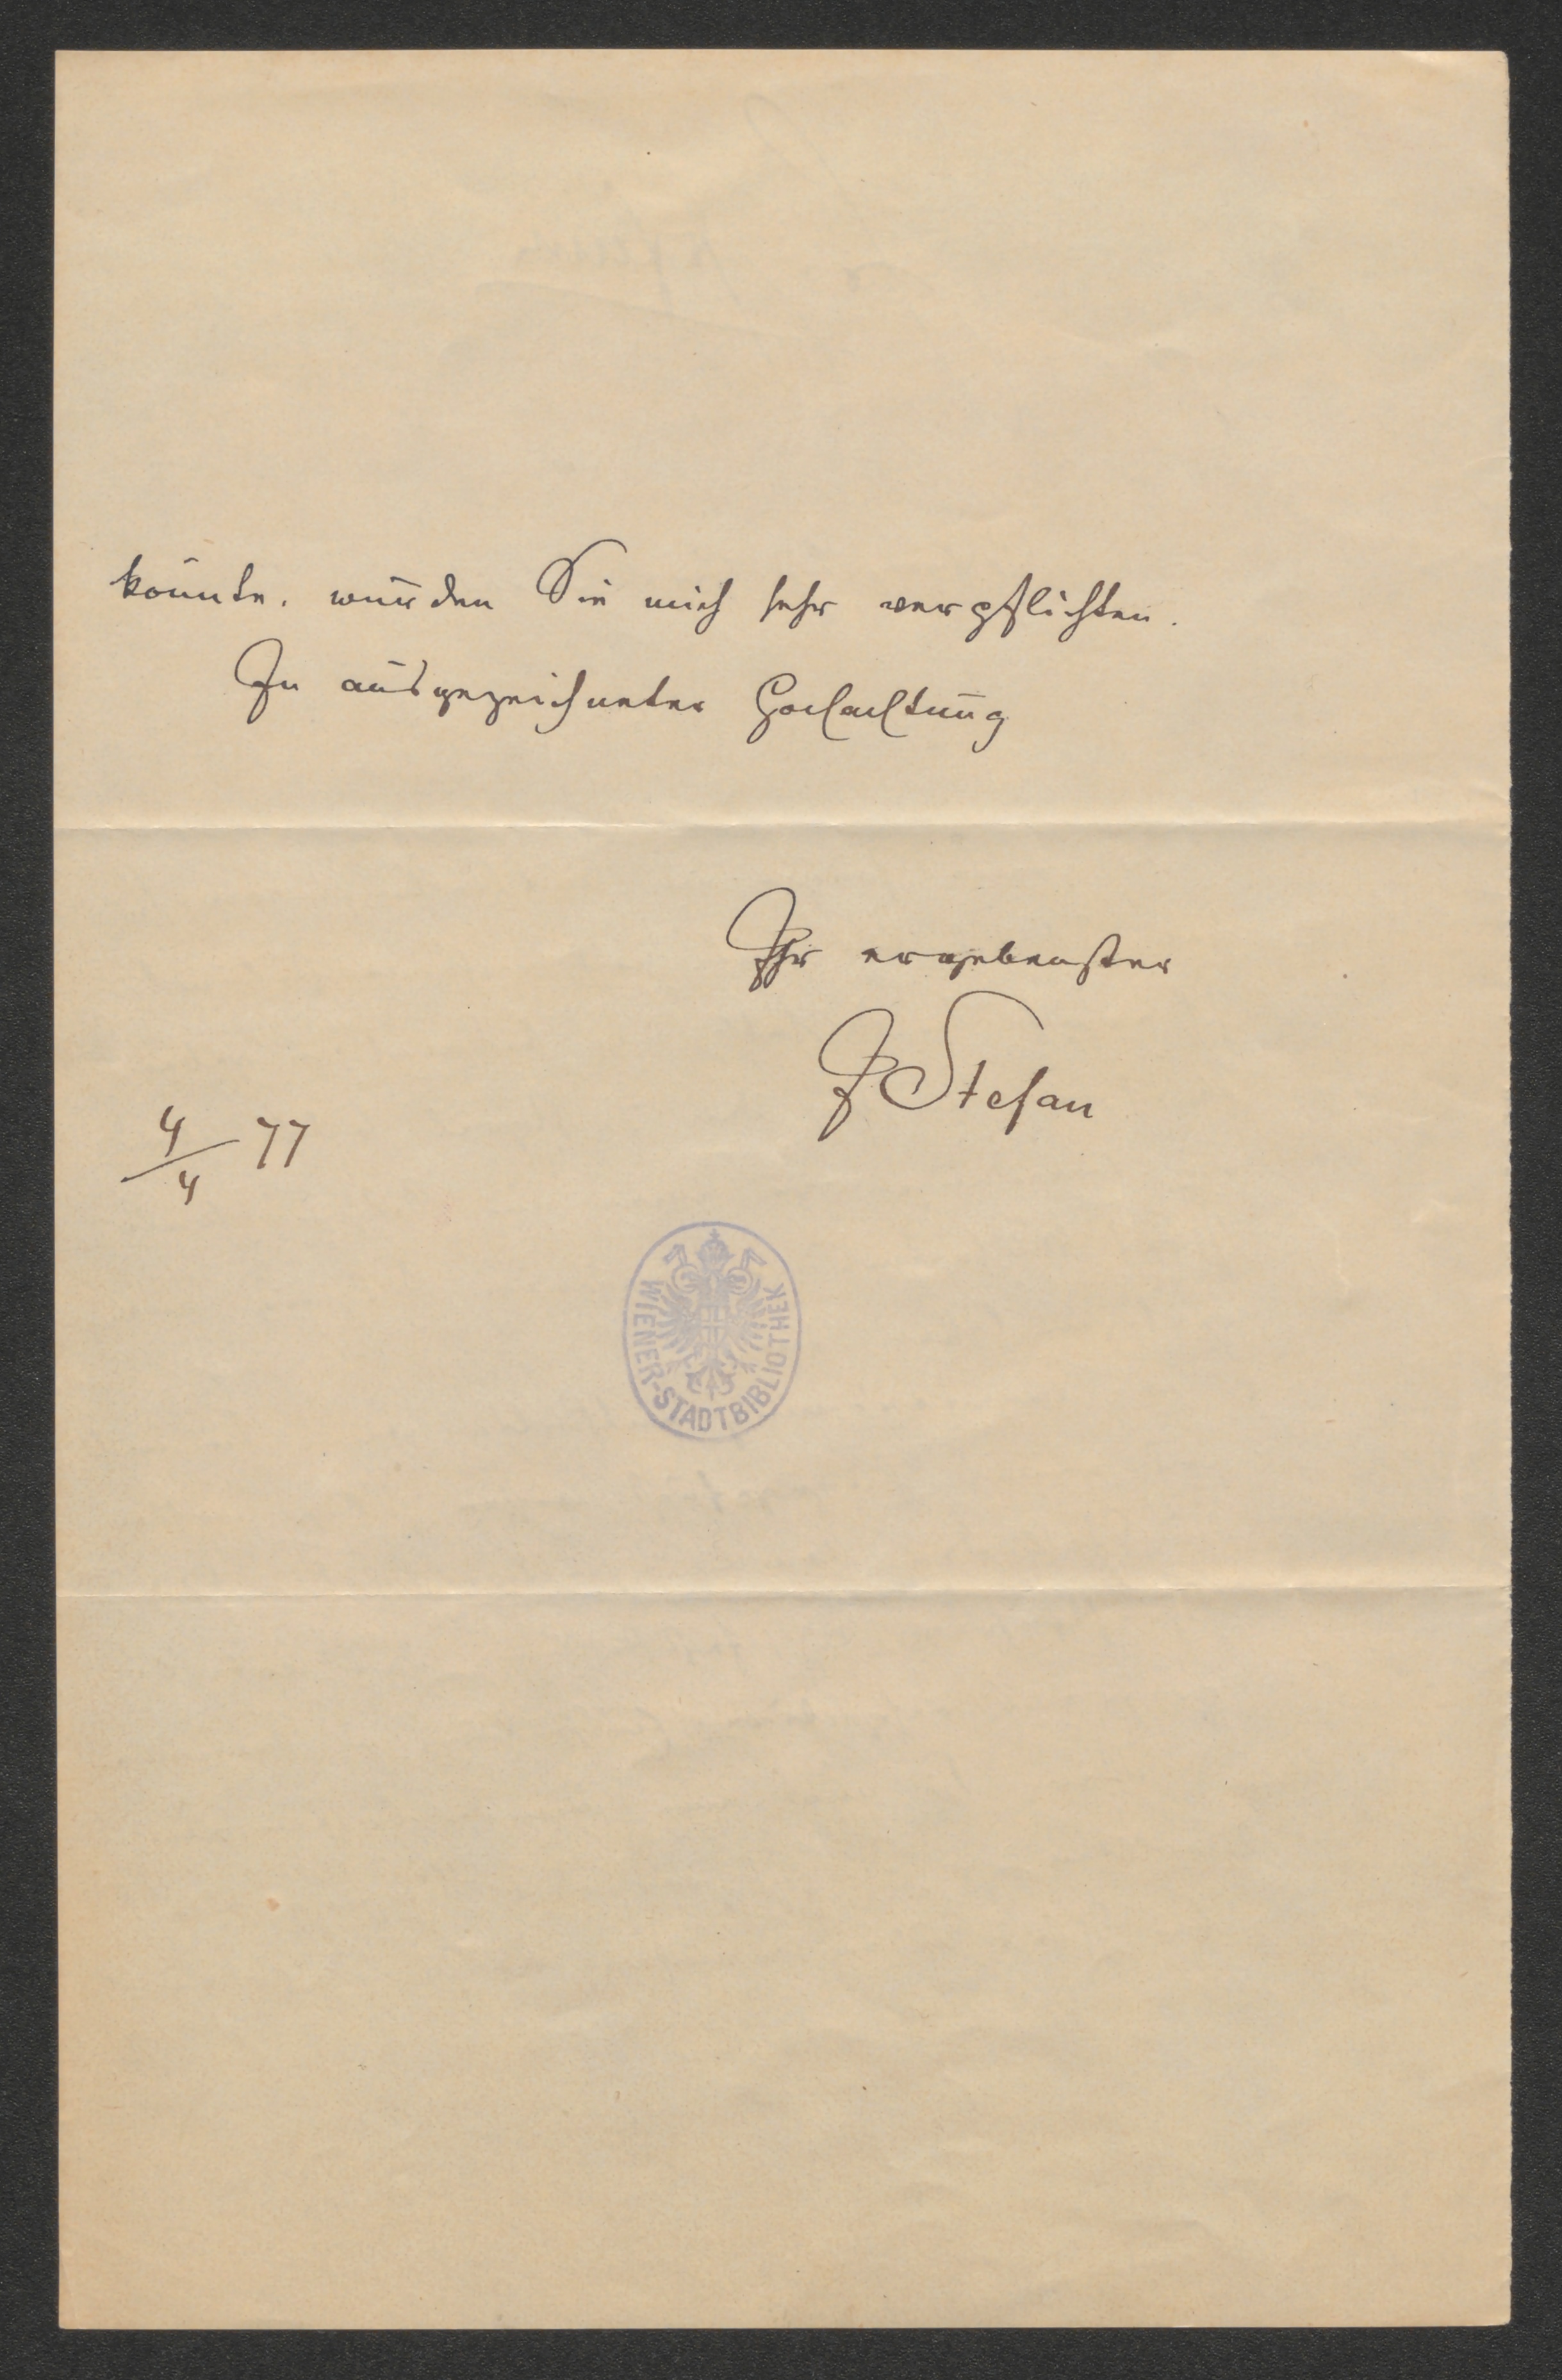 könnte, würden Sie mich sehr verpflichten.
In ausgezeichneter Hochachtung
Ihr ergebenster
J Stefan
4/4 77
WIENER-STADTBIBLIOTHEK